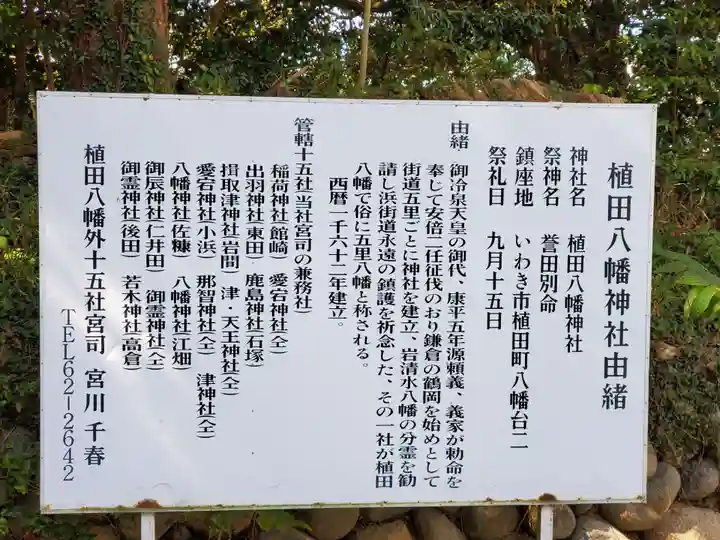 植田八幡神社由緒
神社名　植田八幡神社
祭神名　誉田別命
鎮座地　いわき市植田町八幡台二
祭礼日　九月十五日
由緒　御冷泉天皇の御代、康平五年源頼義、義家が勅命を
奉じて安倍二任征伐のおり鎌倉の鶴岡を始めとして
街道五里ごとに神社を建立、岩清水八幡の分霊を勧
請し浜街道永遠の鎮護を祈念した、その一社が植田
八幡で俗に五里八幡と称される。
西暦一千六十二年建立。
管轄十五社（当社宮司の兼務社）
稲荷神社（館崎）　愛宕神社（仝）
出羽神社（東田）　鹿島神社（石塚）
揖取津神社（岩間）　津・天王神社（仝）
愛宕神社（小浜）　那智神社（仝）　津神社（仝）
八幡神社（佐糠）　八幡神社（江畑）
御辰神社（仁井田）　御霊神社（仝）
御霊神社（後田）　若木神社（高倉）
植田八幡外十五社宮司　宮川千春
TEL62-2642